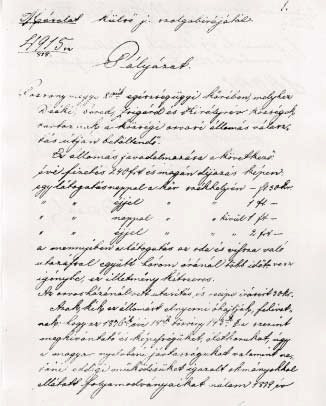 1.
külső j. szolgabírájától.
4915 sz
Pályázat.
Pozsony megye egészségügyi körében, melyhez
Deáki, Zsigárd és Királyrév községek
tartoznak a községi orvosi állomás válasz-
tás útján betöltendő.
Ez állomás javadalmazása a következő
évi fizetés 240 frt és magán díjazás képen
egy látogatás nappal a kör székhelyén – ft 50 kr
" " éjjel " " 1 ft –
" " nappal " " kívül 1 ft –
" " éjjel " " " 2 ft –
a mennyiben a látogatás az oda és vissza való
utazással együtt három óránál több időt vesz
igénybe, ez illetmény kétszeres.
Az orvos házánál utasítás és 20 kr.
Azok, kik ez állomást elnyerni óhajtják, felhivat-
nak, hogy az 1876 évi 14 törvény § szerint
megkívántató képzettségüket, életkorukat, úgy
a magyar nyelvbeni jártasságukat valamint
eddigi működésüket igazoló okmányokkal
ellátott folyamodványaikat nálam